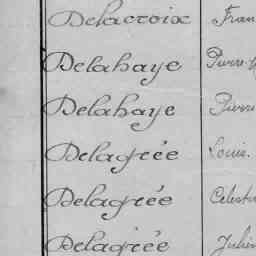 Delacroix Fran
Delahaye Pierre
Delahaye Pierre
Delagrée Louis.
Delagrée Celesti
Delagrée Julien